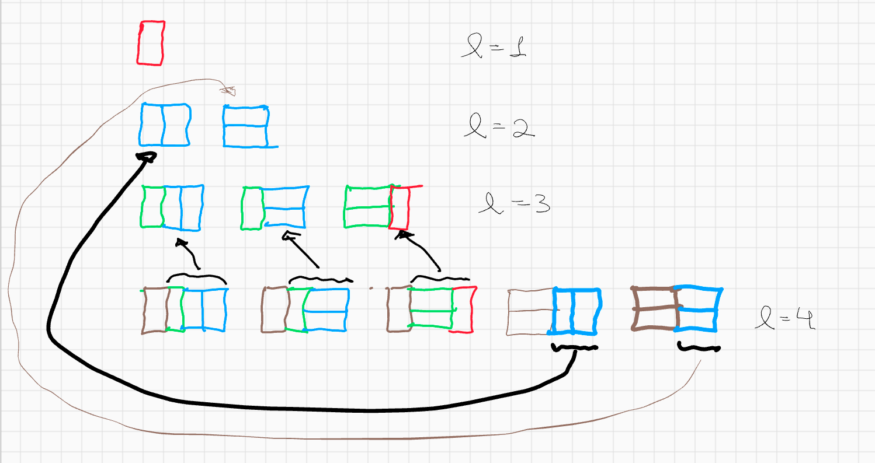 l=1
l=2
l=3
l=4